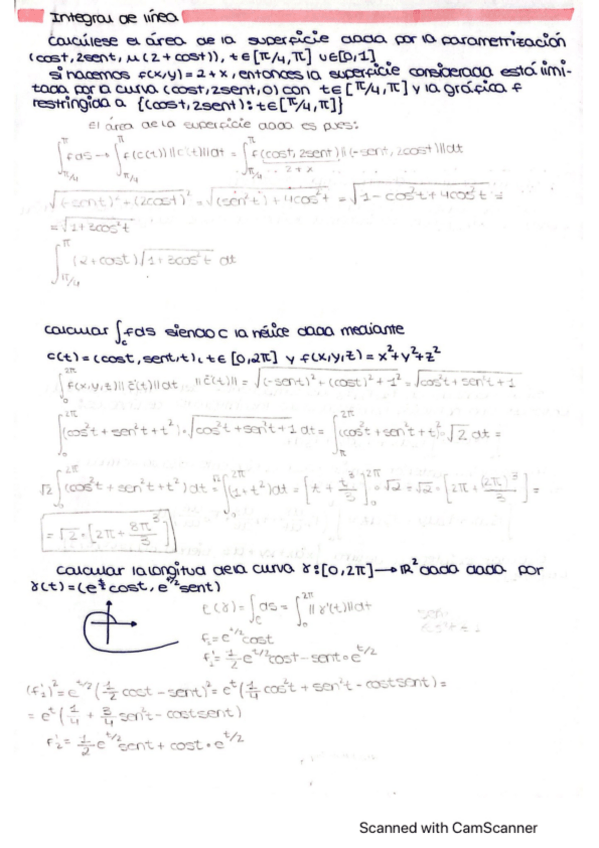 Integral de línea
Calcúlese el área de la superficie dada por la parametrización
(cost, 2sent, μ(2+cost)), t∈[π/4, π] u∈[0,1]
si hacemos f(x,y)=2+x, entonces la superficie considerada está limi-
tada por la curva (cost, 2sent, 0) con t∈[π/4, π] y la gráfica f
restringida a {(cost, 2sent): t∈[π/4, π]}
El área de la superficie dada es pues:
∫_{π/4}^{π} fds → ∫_{π/4}^{π} f(c(t))||c'(t)||dt = ∫_{π/4}^{π} f(cost, 2sent)||(-sent, 2cost)||dt
2+x
√(-sent)²+(2cost)² = √(sen²t)+4cos²t = √1-cos²t+4cos²t =
= √1+3cos²t
∫_{π/4}^{π} (2+cost)√1+3cos²t dt
calcular ∫_c fds siendo c la hélice dada mediante
c(t)=(cost, sent, t), t∈[0,2π] y f(x,y,z)=x²+y²+z²
∫_0^{2π} f(x,y,z)||c'(t)||dt ||c'(t)|| = √(-sent)²+(cost)²+1² = √cos²t+sen²t+1
∫_0^{2π} (cos²t+sen²t+t²)·√cos²t+sen²t+1 dt = ∫^{2π} (cos²t+sen²t+t²)·√2 dt =
√2 ∫_0^{2π} (cos²t+sen²t+t²)dt = √2 ∫_0^{2π} (1+t²)dt = [t+t³/3]_0^{2π} = √2 = √2·[2π+(2π)³/3] =
= √2·[2π+8π³/3]
calcular la longitud de la curva γ:[0,2π]→ℝ² dada dada por
γ(t)=(e^{t/2}cost, e^{t/2}sent)
ℓ(γ)=∫_c ds = ∫_0^{2π} ||γ'(t)||dt
f₁=e^{t/2}cost
f₁'=1/2·e^{t/2}cost-sent·e^{t/2}
(f₁')²=e^{t/2}(1/2 cost-sent)²=e^t(1/4 cos²t+sen²t-costsent)=
=e^t(1/4+3/4 sen²t-costsent)
f₂'=1/2·e^{t/2}sent+cost·e^{t/2}
Scanned with CamScanner